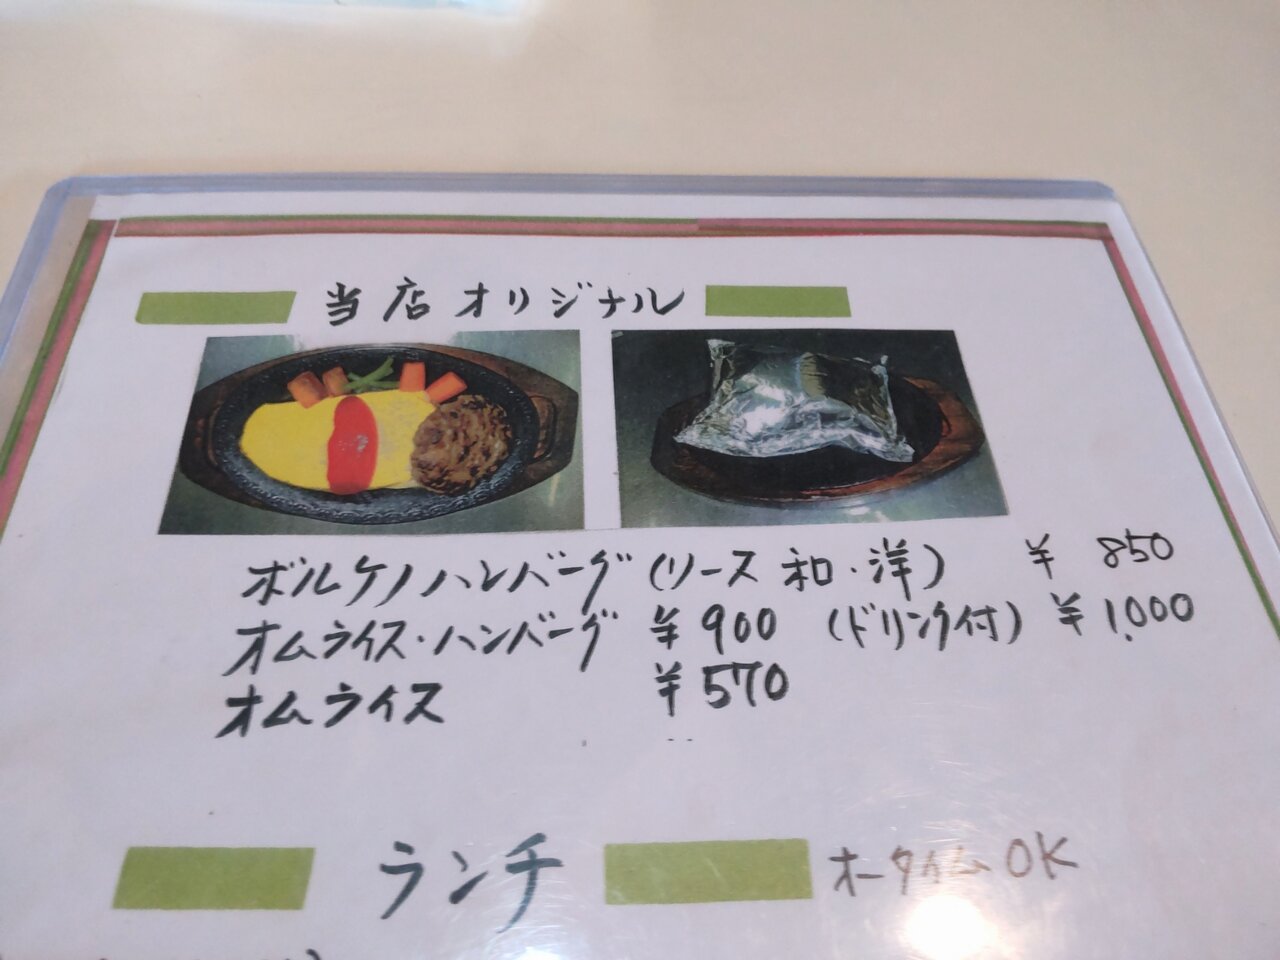 当店オリジナル
ボルケノハンバーグ(ソース 和・洋) ¥ 850
オムライス・ハンバーグ ¥900 (ドリンク付) ¥1,000
オムライス ¥570
ランチ オータイムOK